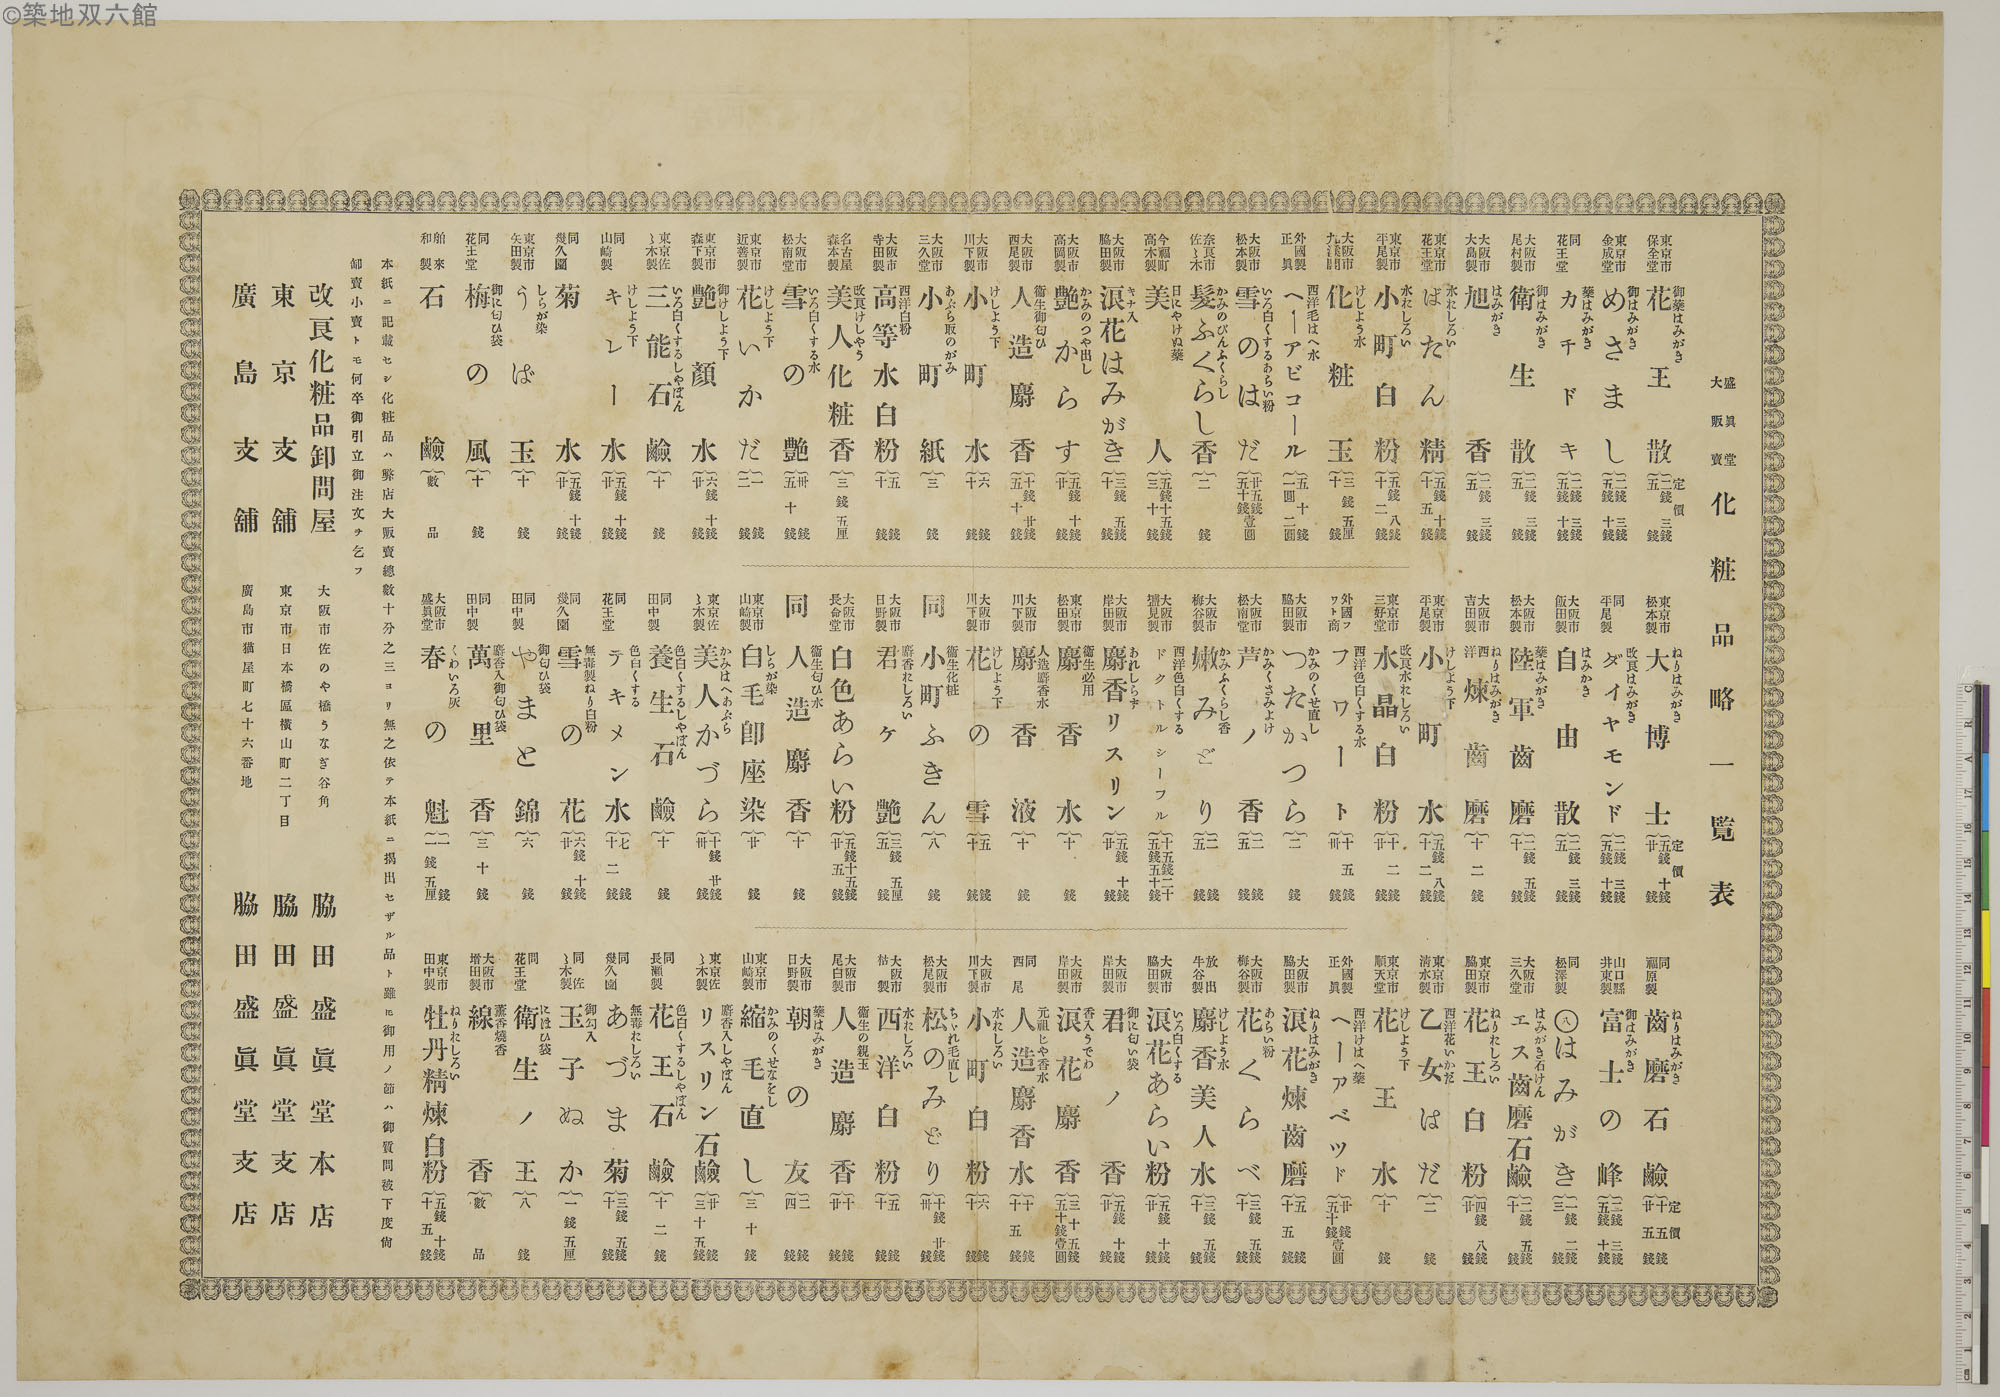 ©築地双六館
盛眞堂大販賣 化粧品略一覽表
東京市保全堂 御藥はみがき 花王散 定價 二錢 三錢 五錢
東京市金成堂 御はみがき めさまし 二錢 三錢 五錢 十錢
同花王堂 藥はみがき カチドキ 二錢 三錢 五錢 十錢
大阪市尾村製 御はみがき 衛生散 二錢 三錢 五錢
大阪市大島製 はみがき 旭香 二錢 三錢 五錢
東京市花王堂 水おしろい ばたん精 五錢 十錢 十五錢
東京市平尾製 水おしろい 小町白粉 五錢 八錢 十二錢
大阪市 けしよう水 化粧玉 三錢五厘 十錢
外國製正眞 西洋毛はへ水 ヘーアビコール 五十錢 一圓 二圓
大阪市松本製 いろ白くするあらい粉 雪のはだ 廿五錢 五十錢 壹圓
奈良市佐々木 かみのびんふくらし 髮ふくらし香 二錢
今福町高木製 日にやけぬ藥 美人 五錢 十五錢 三十錢
大阪市脇田製 キナ入 浪花はみがき 三錢 五錢 十錢
大阪市高岡製 かみのつや出し 艷からす 五錢 十錢 廿錢
大阪市西尾製 衛生御匂ひ 人造麝香 十錢 廿錢 五十錢
大阪市川下製 けしよう下 小町水 六錢 十錢
大阪市三久堂 あぶら取のがみ 小町紙 三錢
大阪市寺田製 西洋白粉 高等水白粉 五錢 十錢
名古屋森本製 改良けしやう 美人化粧香 三錢五厘
大阪市松南堂 いろ白くする水 雪の艷 卅錢 五十錢
東京市近善製 けしよう下 花いかだ 一錢 二錢
東京市森下製 御けしよう下 艷顏水 六錢 十錢 廿錢
東京佐々木製 いろ白くするしやぼん 三能石鹼 十錢
同山崎製 けしよう下 キレー水 五錢 十錢 廿錢
同幾久園 菊水 五錢 十錢 廿錢
東京市矢田製 しらが染 うば玉 十錢
同花王堂 御にほひ袋 梅の風 十錢
舶來和製 石鹼 數品
東京市松本製 ねりはみがき 大博士 定價 五錢 十錢 廿錢
同平尾製 改良はみがき ダイヤモンド 二錢 三錢 五錢 十錢
大阪市飯田製 はみかき 自由散 二錢 三錢 五錢
大阪市松本製 藥はみがき 陸軍齒磨 二錢 五錢 十錢
大阪市吉田製 ねりはみがき 西洋煉齒磨 十二錢
東京市平尾製 けしよう下 小町水 五錢 八錢 十二錢
東京市三好堂 改良水おしろい 水晶白粉 十二錢 廿錢
外國フワト商 西洋色白くする水 フワート 十五錢 卅錢
大阪市脇田製 かみのくせ直し つたかつら 二錢
大阪市松南堂 かみくさみよけ 芦ノ香 二錢 五錢
大阪市梅谷製 かみふくらし香 嫩みどり 二錢 五錢
大阪市盛見製 西洋色白くする ドクトルシーフル 十五錢 二十五錢 五十錢
大阪市岸田製 あれしらず 麝香リスリン 五錢 十錢 廿錢
東京市松田製 衛生必用 麝香水 十錢
大阪市川下製 人造麝香水 麝香液 十錢
大阪市川下製 けしよう下 花の雪 五錢 十錢
同 衛生化粧 小町ふきん 八錢
大阪市日野製 麝香おしろい 君ヶ艷 三錢五厘 五錢
大阪市長命堂 白色あらい粉 五錢 十五錢 廿五錢
同 衛生匂ひ水 人造麝香 十錢
東京市山崎製 しらが染 白毛卽座染 廿錢
東京佐々木製 かみはへあぶら 美人かづら 十錢 廿錢 卅錢
同田中製 色白くするしやぼん 養生石鹼 十錢
同花王堂 色白くする テキメン水 七錢 十二錢
同幾久園 無毒製ねり白粉 雪の花 六錢 十錢 廿錢
同田中製 御匂ひ袋 やまと錦 六錢
同田中製 麝香入御匂ひ袋 萬里香 三十錢
大阪市盛眞堂 くわいろ灰 春の魁 一錢 一錢五厘
同福原製 ねりはみがき 齒磨石鹼 定價 十五錢 廿五錢
山口縣井東製 御はみがき 富士の峰 二錢 三錢 五錢 十錢
同松澤製 はみがき石けん 八はみがき 一錢 二錢 三錢
大阪市三久堂 エス齒磨石鹼 二錢 五錢 十錢
東京市脇田製 ねりおしろい 花王白粉 四錢 八錢 廿錢
東京市清水製 西洋花いかだ 乙女はだ 二錢
東京市順天堂 けしよう下 花王水 十錢
外國製正眞 西洋けはへ藥 ヘーアベツド 廿錢 五十錢 壹圓
大阪市脇田製 ねりはみがき 浪花煉齒磨 五錢 十五錢
大阪市梅谷製 あらい粉 花くらべ 三錢 五錢 十錢
放出牛谷製 けしよう水 麝香美人水 三錢 五錢 十錢
大阪市脇田製 いろ白くする 浪花あらい粉 五錢 十錢 廿錢
大阪市岸田製 御にほい袋 君ノ香 五錢 十錢 廿錢
大阪市岸田製 香入うでわ 浪花麝香 三十五錢 五十錢 壹圓
同西尾 元祖じや香水 人造麝香水 十錢 十五錢
大阪市川下製 水おしろい 小町白粉 六錢 十錢
大阪市松尾製 ちゞれ毛直し 松のみどり 十錢 廿錢 卅錢
大阪市 水おしろい 西洋白粉 五錢 十錢
大阪市尾白製 衛生の親玉 人造麝香 十錢 廿錢
大阪市日野製 藥はみがき 朝の友 二錢 四錢
東京市山崎製 かみのくせなをし 縮毛直し 三十錢
東京佐々木製 麝香入しやぼん リスリン石鹼 廿錢 三十五錢
同長瀬製 色白くするしやぼん 花王石鹼 十二錢
同幾久園 無毒おしろい あづま菊 三錢 五錢 十錢
同佐々木製 御匂入 玉子ぬか 一錢五厘
同花王堂 にほひ袋 衛生ノ王 八錢
大阪市増田製 薰香燒香 線香 數品
東京市田中製 ねりおしろい 牡丹精煉白粉 五錢 十錢 十五錢
本紙ニ記載セシ化粧品ハ弊店大販賣總數十分之三ヨリ無之依テ本紙ニ揭出セザル品ト雖ヒ御用ノ節ハ御質問被下度尙
卸賣小賣トモ何卒御引立御注文ヲ乞フ
改良化粧品卸問屋 大阪市佐のや橋うなぎ谷角 脇田盛眞堂本店
東京支舖 東京市日本橋區橫山町二丁目 脇田盛眞堂支店
廣島支舖 廣島市猫屋町七十六番地 脇田盛眞堂支店